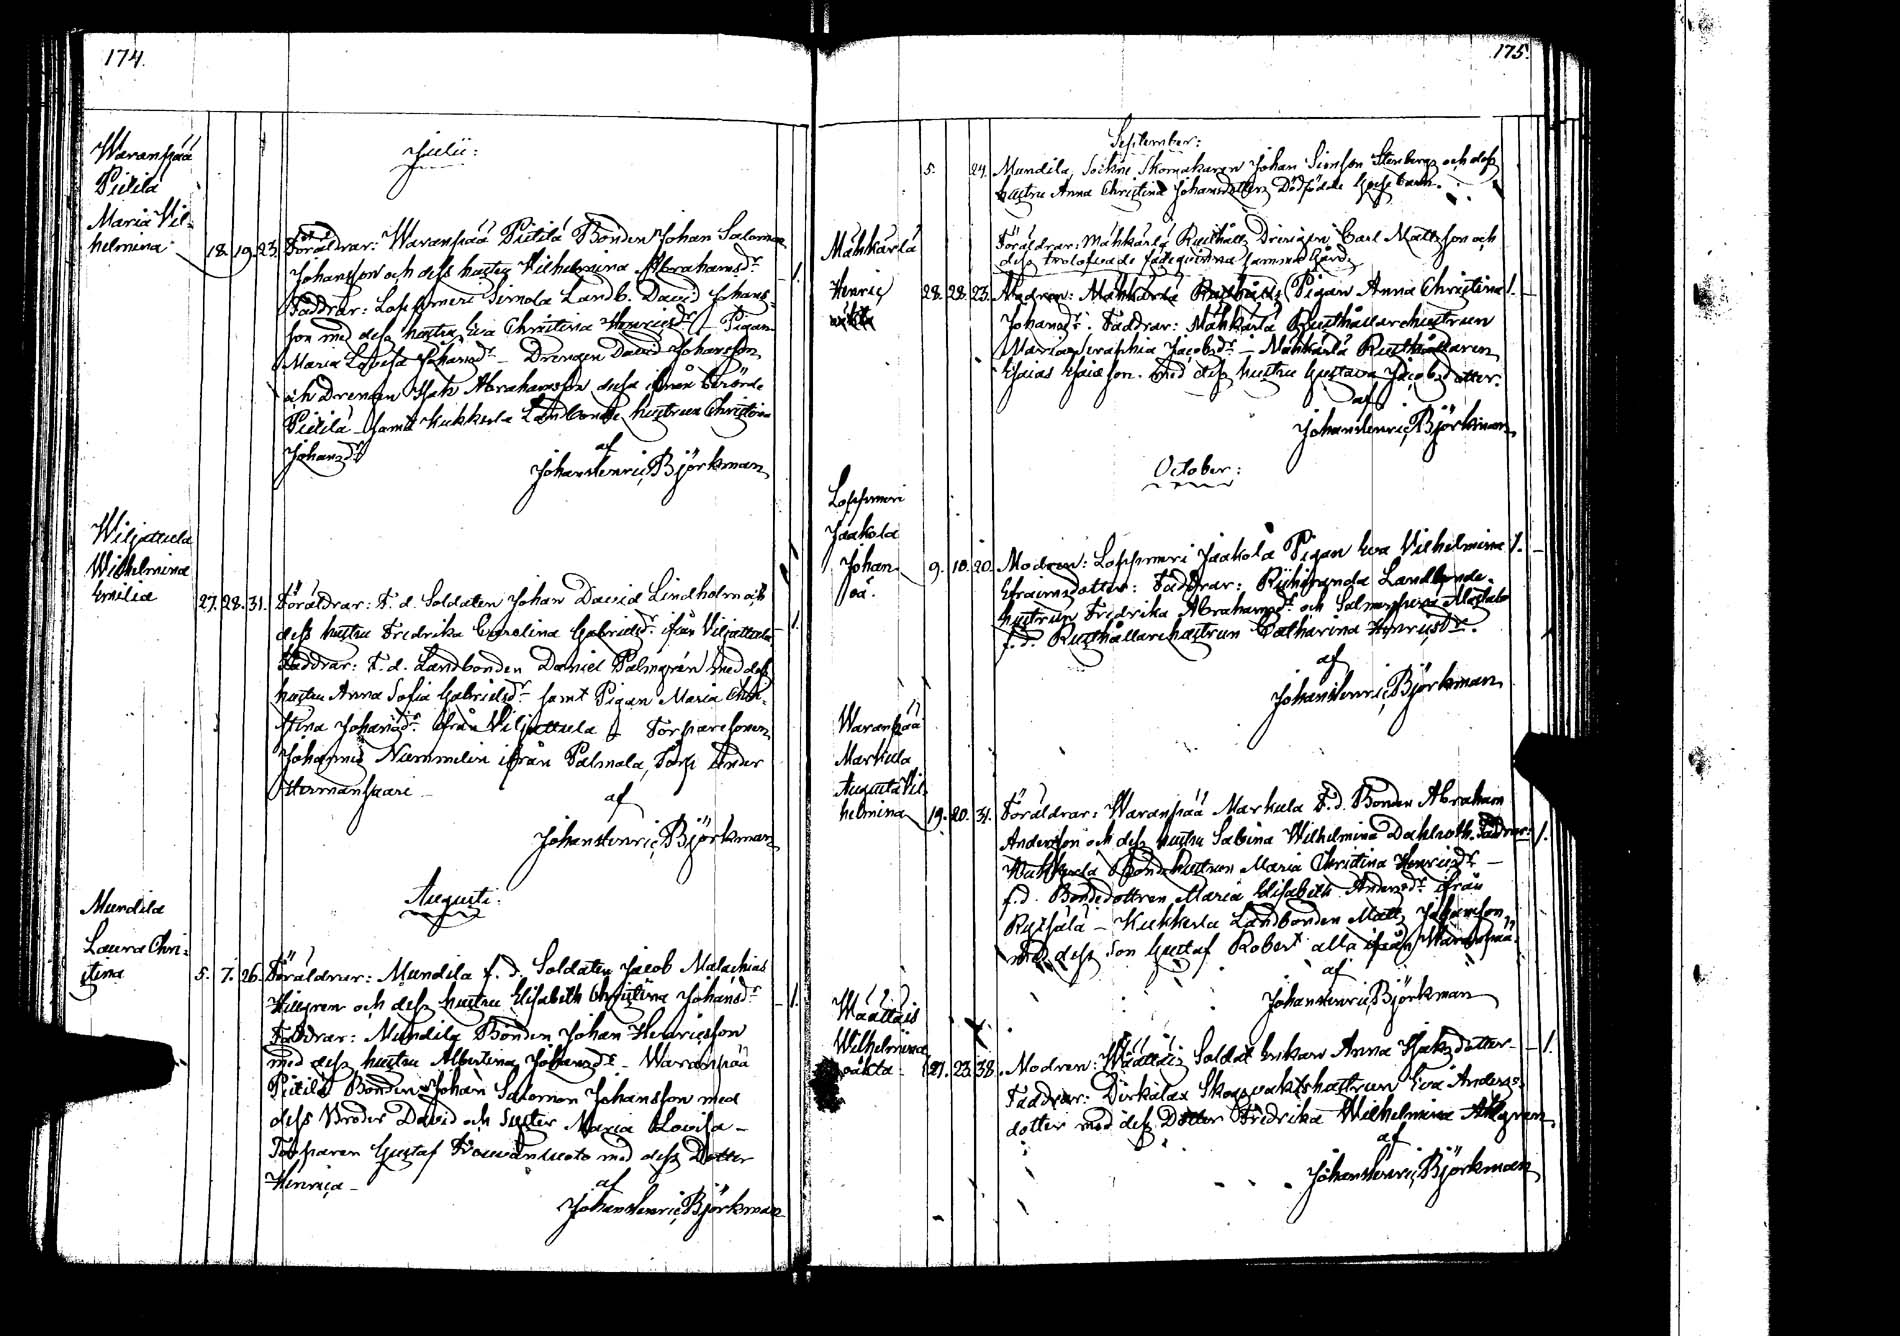 174.
Julii:
Waranpää
Pietilä
Maria Vil-
helmina 18. 19. 23. Föräldrar: Waranpää Pietilä Bonden Johan Salomon
Johansson och dess hustru Wilhelmina Abrahamsdr 1.
Faddrar: Loppmeri Simola Landb. David Johans-
son med dess hustru Eva Christina Henricsdr – Pigan
Maria Lovisa Johansdr – Drengen David Johansson
och Drengen Isak Abrahamsson dessa ifrån berörde
Pietilä – samt Kukkerla Landbonde hustrun Christina
Johansdr
af
Johan Henric Björkman
Wiljattula
Wilhelmina
Emilia 27. 28. 31. Föräldrar: F. d. Soldaten Johan David Lindholm och
dess hustru Fredrika Carolina Gabrielsdr ifrån Viljattula 1.
Faddrar: F. d. Landbonden Daniel Palmgrén med dess
hustru Anna Sofia Gabrielsdr samt Pigan Maria Chri-
stina Johansdr ifrån Viljattula – Torparesonen
Johannes Nummelin ifrån Palmala, Torp under
Hermansaari –
af
Johan Henric Björkman
Augusti:
Mundila
Laura Chri-
stina 5. 7. 26. Föräldrar: Mundila f. d. Soldaten Jacob Malachias
Hillgren och dess hustru Elisabeth Christina Johansdr 1.
Faddrar: Mundila Bonden Johan Henricsson
med dess hustru Albertina Johansdr – Waranpää
Pietilä Bonden Johan Salomon Johansson med
dess Broder David och Syster Maria Lovisa –
Torparen Gustaf med dess Dotter
Henrica –
af
Johan Henric Björkman
175.
September:
5. 24. Mundila, Sockne Skomakaren Johan Simsson Stenberg och dess
hustru Anna Christina Johansdotters Dödfödde Gosse barn.
Mähkärlä Föräldrar: Mähkärlä Rusthålls Drengen Carl Mattsson och
dess trolofvade
Henric 28. 28. 23. Modren: Mähkärlä Rusthålls Pigan Anna Christina 1.
Johansdr. Faddrar: Mähkärlä Rusthållarehustrun
Maria Seraphia Jacobsdr – Mähkärlä Rusthållaren
Esaias Esaiasson med dess hustru Gustava Jacobsdotter.
af
Johan Henric Björkman
October:
Loppmeri
Jaakola
Johan 9. 10. 20. Modren: Loppmeri Jaakola Pigan Eva Vilhelmina 1.
oä. Efraimsdotter: Faddrar: Landbonde-
hustrun Fredrika Abrahamsdr och
f. d. Rusthållarehustrun Catharina Henricsdr.
af
Johan Henric Björkman
Waranpää
Markula
Augusta Vil-
helmina 19. 20. 31. Föräldrar: Waranpää Markula F. d. Bonden Abraham
Andersson och dess hustru Sabina Wilhelmina Dahlroth. Faddrar: 1.
Kukkerla Bondehustrun Maria Christina Henricsdr –
f. d. Bondedottren Maria Elisabeth Andersdr ifrån
– Kukkerla Landbonden Matts Johansson
med dess Son Gustaf Robert alla ifrån Waranpää.
af
Johan Henric Björkman
Määttäis
Wilhelmina
oäkta 21. 23. 38. Modren: Määttäis Soldat Enkan Anna Isaksdotter – 1.
Faddrar: Dirkalax Skogvaktshustrun Eva Anders-
dotter med dess Dotter Fredrika Wilhelmina Ahlgren
af
Johan Henric Björkman